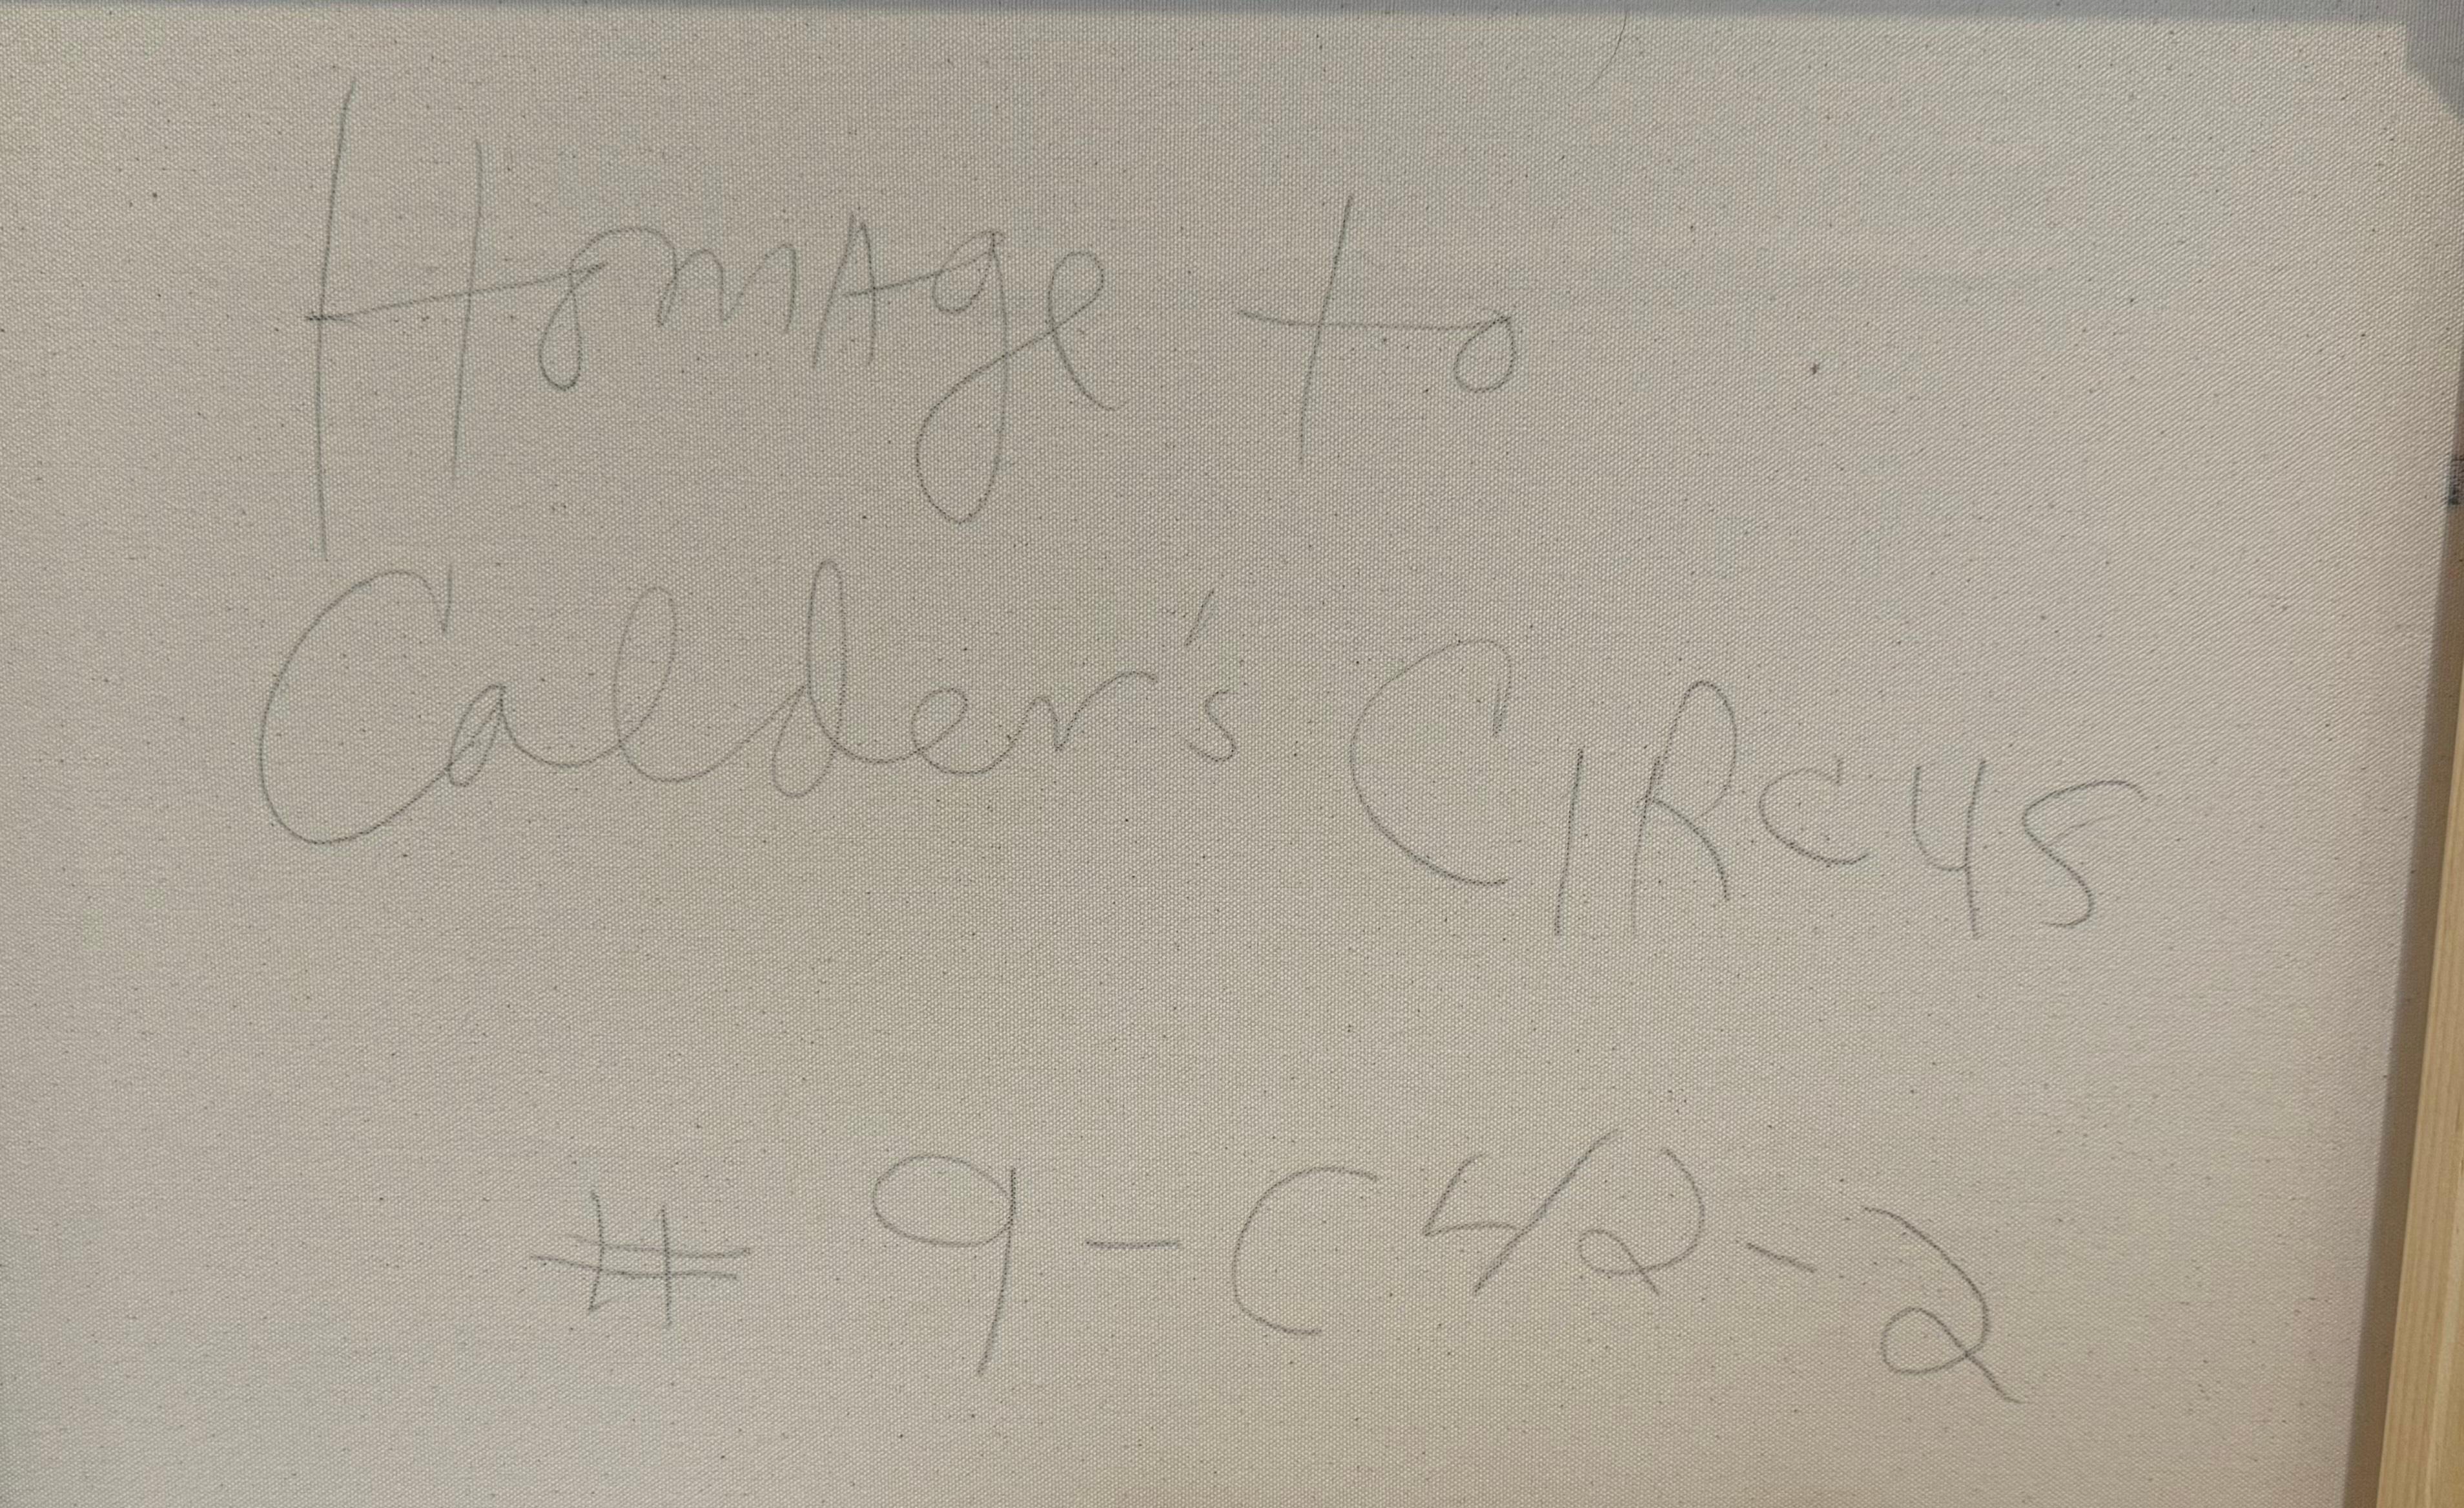 Homage to
Calder's CIRcus
# 9-C42-2